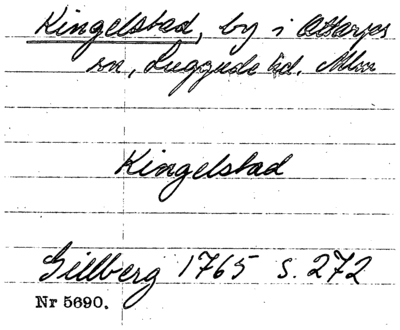 Kingelstad, by i Allerps
sn, Luggude hd. Mlm
Kingelstad
Gillberg 1765 s. 272
Nr 5690.